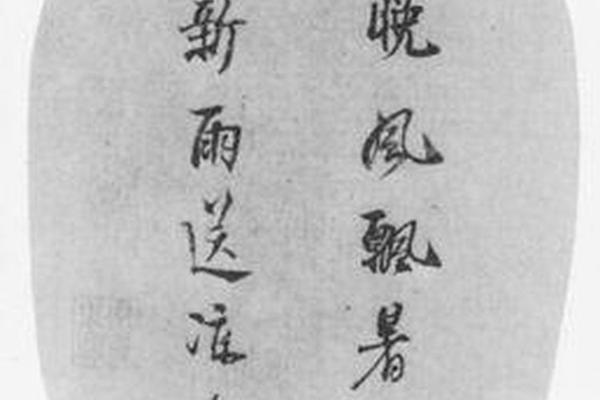 晚风飘暑
新雨送凉